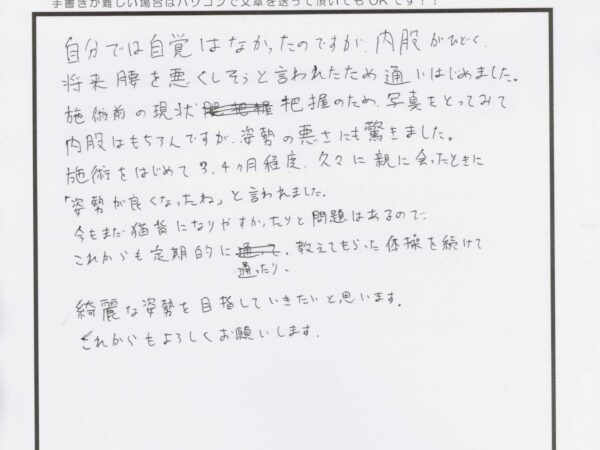 手書きが難しい場合はパソコンで文章を送って頂いてもOKです！！
自分では自覚はなかったのですが、内股がひどく、
将来腰を悪くしそうと言われたため通いはじめました。
施術前の現状把握のため、写真をとってみて
内股はもちろんですが、姿勢の悪さにも驚きました。
施術をはじめて3,4ヶ月程度、久々に親に会ったときに
「姿勢が良くなったね」と言われました。
今もまだ猫背になりやすかったりと問題はあるので、
これからも定期的に通って、教えてもらった体操を続けて
通ったり、
綺麗な姿勢を目指していきたいと思います。
これからもよろしくお願いします。